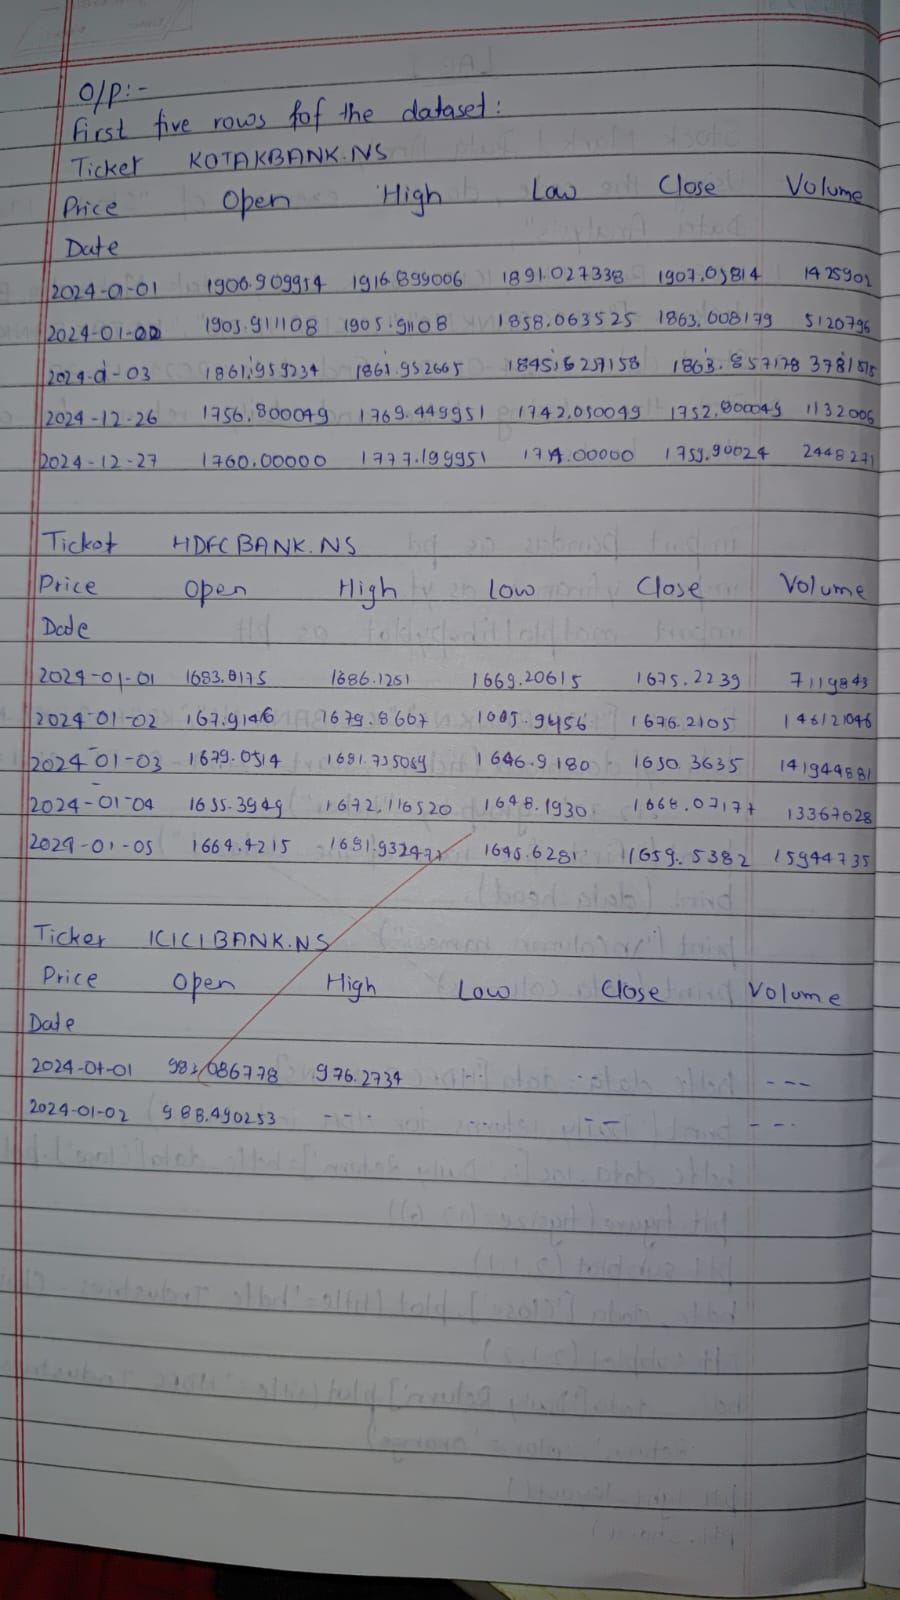 O/P:-
First five rows fof the dataset:
Ticket KOTAKBANK.NS
Price Open High Low Close Volume
Date
2024-01-01 1906.909954 1916.899006 1891.027338 1907.05814 1425902
2024-01-02 1905.911108 1905.91108 1858.063525 1863.008179 5120796
2024-01-03 1861.959234 1861.952665 1845.6 257158 1863.857178 3781515
2024-12-26 1756.800049 1769.449951 1742.050049 1752.800049 1132006
2024-12-27 1760.00000 1777.199951 1714.00000 1759.90024 2448271
Ticket HDFCBANK.NS
Price Open High Low Close Volume
Date
2024-01-01 1683.0175 1686.1251 1669.20615 1675.2239 7119843
2024-01-02 167.9146 1679.8667 1665.9456 1676.2105 146121046
2024-01-03 1679.0514 1681.735069 1646.9180 1650.3635 141944881
2024-01-04 1655.3949 1672.116520 1648.1930 1668.07177 13367028
2024-01-05 1664.4215 1681.932471 1645.6281 1659.5382 15944735
Ticker ICICIBANK.NS
Price Open High Low Close Volume
Date
2024-01-01 983.086778 976.2734 ---
2024-01-02 988.490253 ---- --- ---